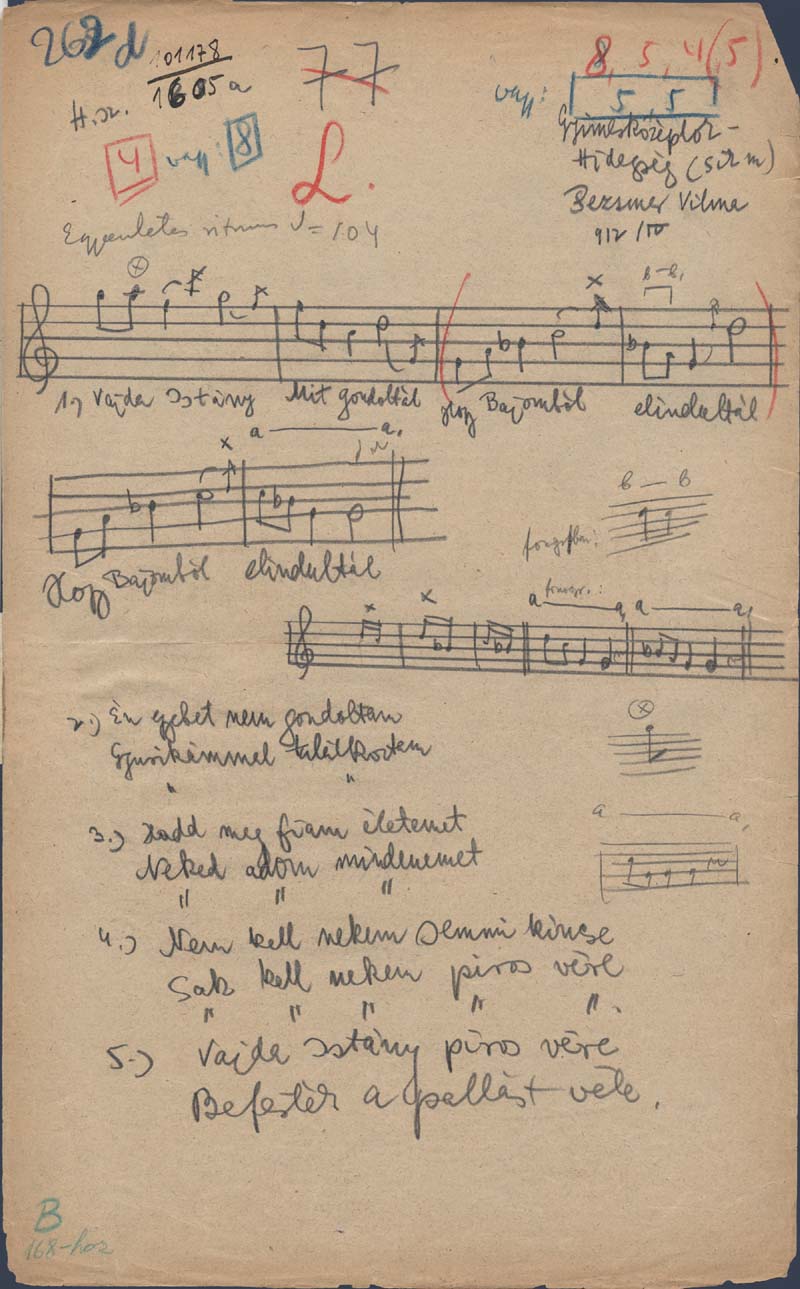 262 d
101178
1605a
H.sz.
77
8, 5, 4(5)
vagy: 5, 5
4 vagy: 8
L.
Gyimesközéplok-
Hidegség (Csík m)
Bezsmer Vilma
912/IV
Egyenletes ritmus ♩=104
b-b,
1.) Vajda Istány Mit gondoltál Hogy Bajomból elindultál
a — a,
Hogy Bajomból elindultál
b — b
fonográfban:
fonogr.:
a — a, a — a,
2.) Én egyebet nem gondoltam
Gyurikámmal találkoztam
" "
3.) Hadd meg fiam életemet
Neked adom mindenemet
" " "
a — a,
4.) Nem kell nekem semmi kincse
Sak kell nekem piros vére
" " " " ".
5.) Vajda Istány piros vére
Befestér a pallást véle.
B
168-hoz